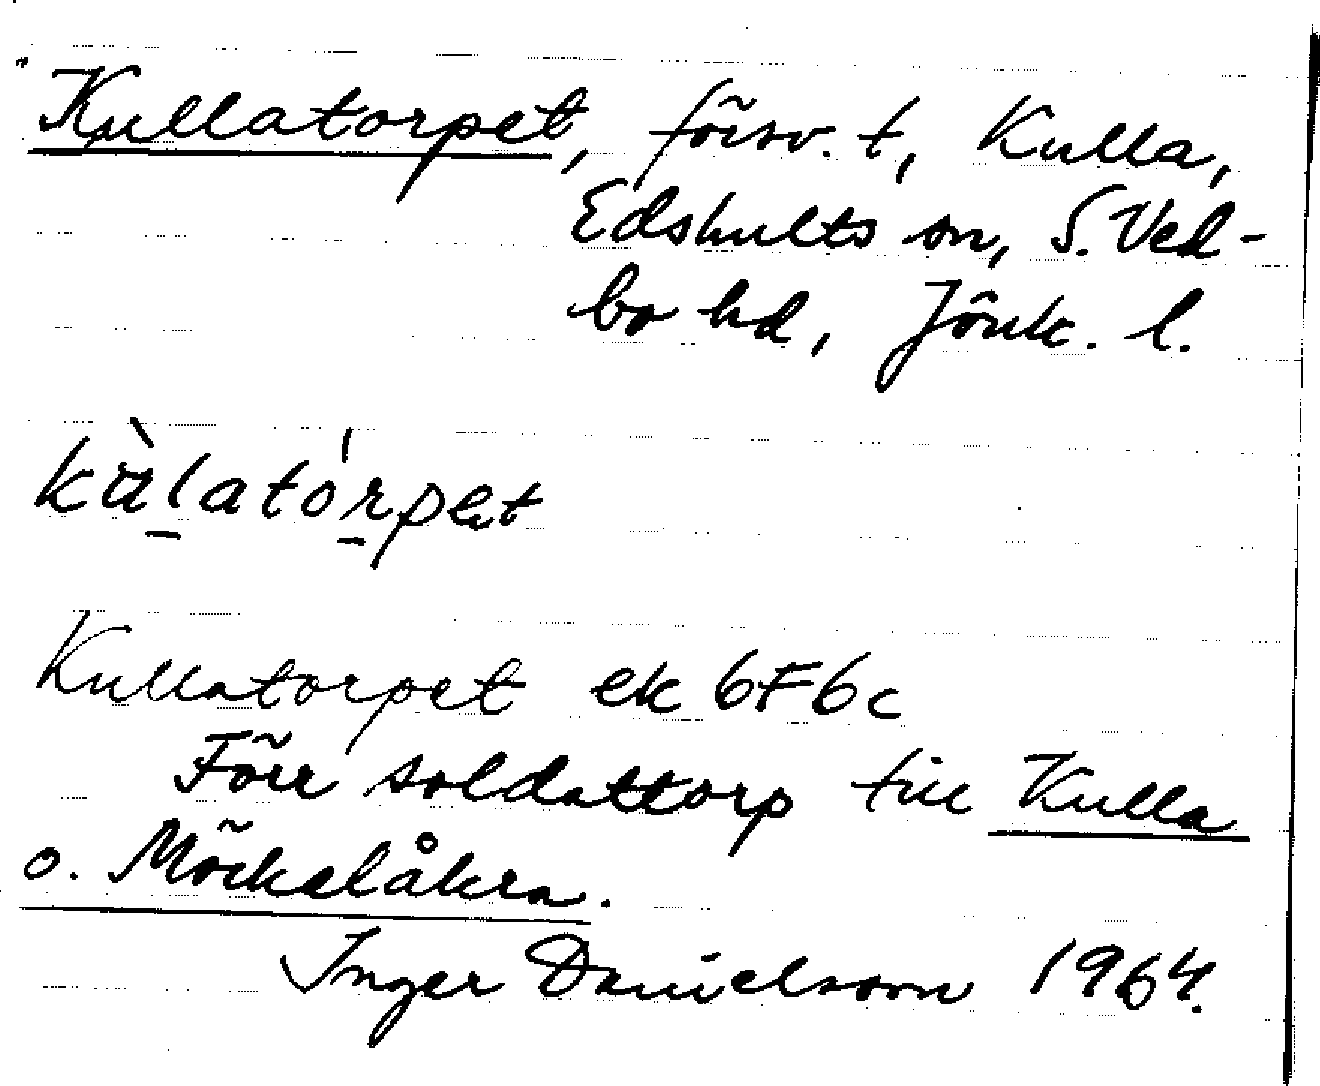 Kullatorpet, försv. t, Kulla,
Edshults sn, S. Ved-
bo hd, Jönk. l.
kùl̠ató̍r̠pet
Kullatorpet ek 6F6c
Förr soldattorp till Kulla
o. Möckelåkra.
Inger Danielsson 1964.